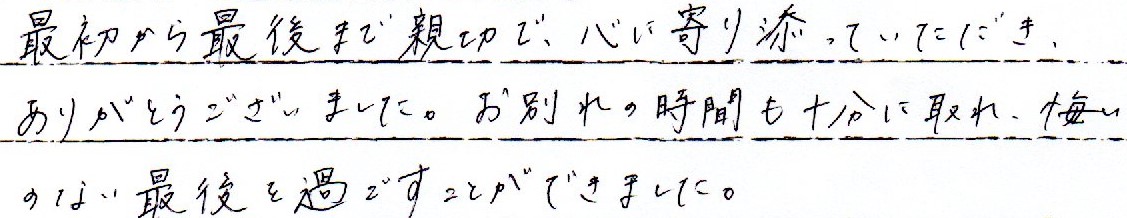 最初から最後まで親切で、心に寄り添っていただき、
ありがとうございました。お別れの時間も十分に取れ、悔い
のない最後を過ごすことができました。